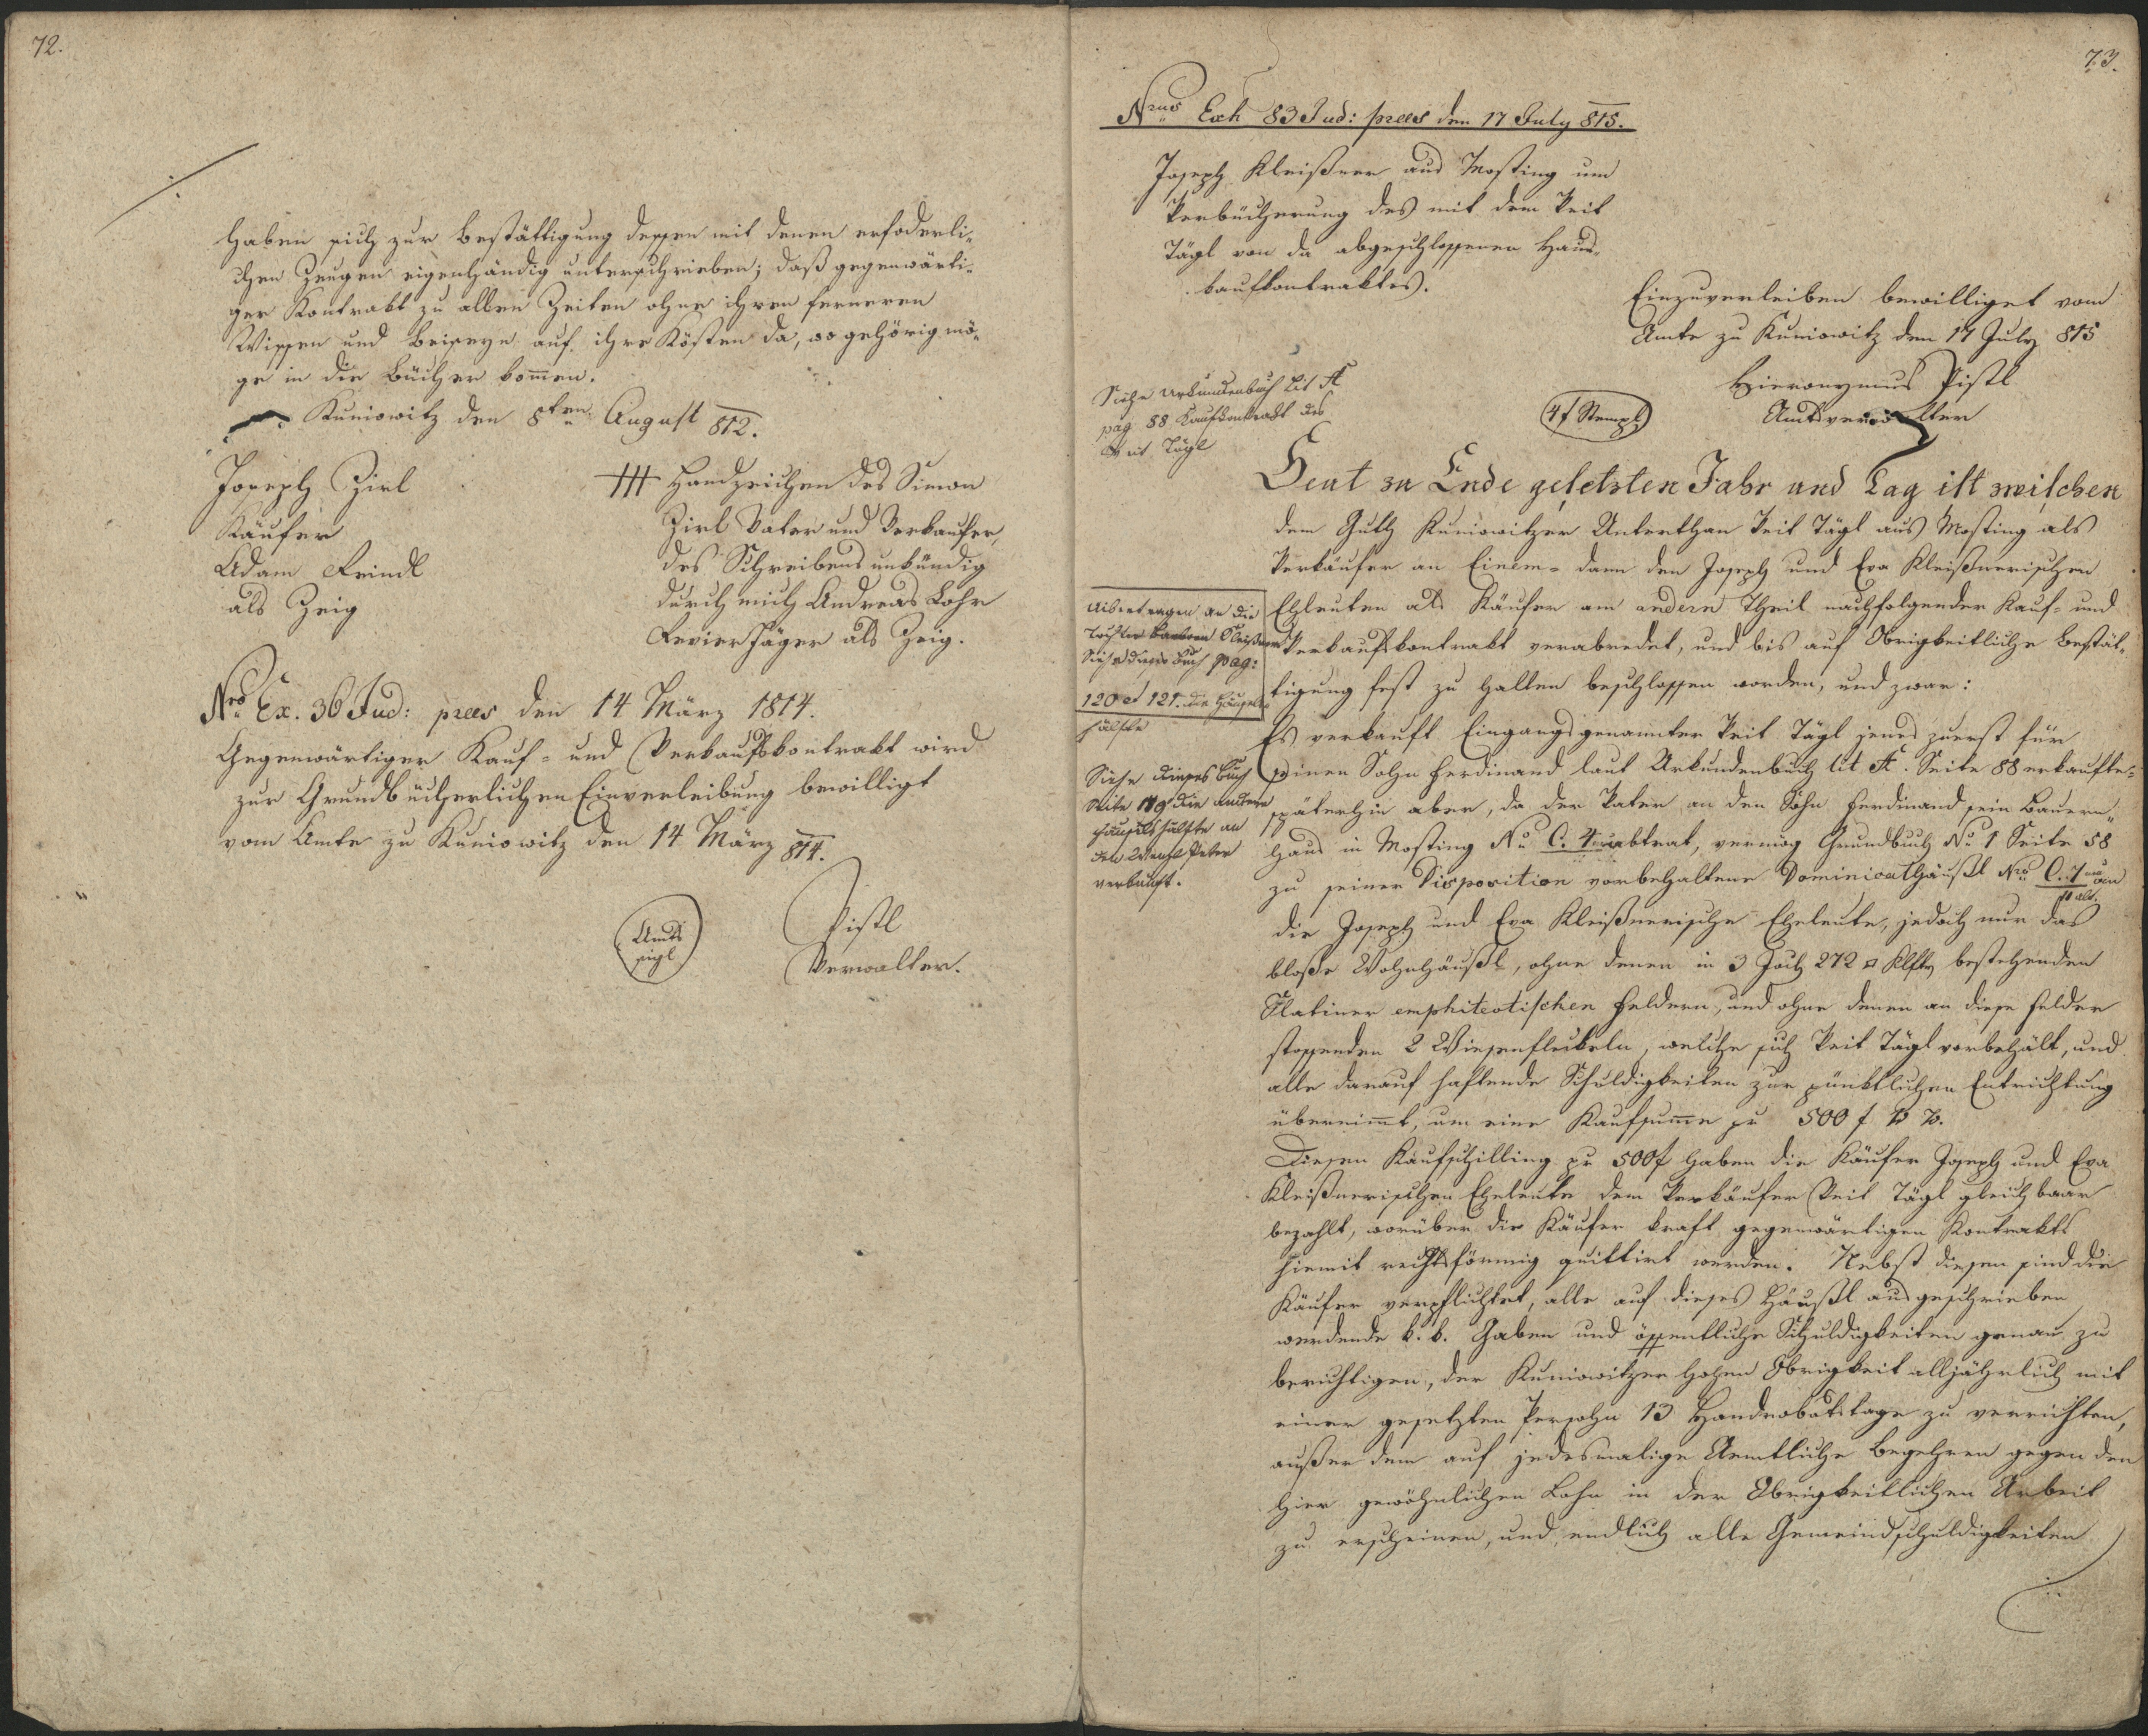 72.
haben sich zur Bestättigung dessen mit denen erfoderli-
chen Zeugen eigenhändig unterschrieben; daß gegenwärti-
ger Kontrakt zu allen Zeiten ohne ihren ferneren
Wissen und Beiseyn auf ihre Kösten da, wo gehörig mö-
ge in die Bücher kom̄en.
Kuniowitz den 8ten August 812.
Joseph Zirl
Käufer
Adam Feindl
als Zeig
+++ Handzeichen des Simon
Zirl Vater und Verkaufer,
des Schreibens unkündig
durch mich Andreas Lohr
Revierjäger als Zeig.
Nro Ex. 36 Jud: praes den 14 März 1814.
Gegenwärtiger Kauf- und Verkaufskontrakt wird
zur Grundbücherlichen Einverleibung bewilligt
vom Amte zu Kuniowitz den 14 März 814.
Amts
sigl
Pistl
Verwalter.
73.
Nrus Exh 83 Jud: praes den 17 July 815.
Joseph Kleißner aus Mosting um
Verbücherung des mit dem Veit
Tägl von da abgeschlossenen Haus-
kaufkontraktes.
Einzuverleiben bewilliget vom
Amte zu Kuniowitz den 17 July 815
Hieronymus Pistl
Amtsverwalter
Siehe Urkundenbuch Lit A
pag 88 Kaufkontrakt des
Veit Tägl
4f Stempl
Heut zu Ende gesetzten Jahr und Tag ist zwischen
dem Guth Kuniowitzer Unterthan Veit Tägl aus Mosting als
Verkäufer an Einem- dann den Joseph und Eva Kleißnerischen
Eheleuten als Käufer am andern Theil nachfolgender Kauf- und
Verkaufskontrakt verabredet, und bis auf Obrigkeitliche Bestät-
tigung fest zu halten beschlossen worden, und zwar:
Uibertragen an die
Tochter Barbara Kleißner
Siehe dieses Buch pag:
120 et 121. die Häusels
hälfte
Es verkauft Eingangs genannter Veit Tägl jenes zuerst für
seinen Sohn Ferdinand laut Urkundenbuch lit A. Seite 88 erkaufte-
späterhin aber, da der Vater an den Sohn Ferdinand sein Bauern-
haus in Mosting No C. 4 abtrat, vermög Grundbuch No 1 Seite 58
zu seiner Disposition vorbehaltene Dominicalhäußl Nro C. 7 neu an
11 alt.
Siehe dieses Buch
Seite die andere
Häusels hälfte an
den Wenzl Peter
verkauft.
die Joseph und Eva Kleißnerische Eheleute, jedoch nur das
bloße Wohnhäußl, ohne denen in 3 Joch 272 □ Klftr bestehenden
Slatiner emphiteotischen Feldern, und ohne denen an diese Felder
stossenden 2 Wiesenfleckeln, welche sich Veit Tägl vorbehält, und
alle darauf haftende Schuldigkeiten zur pünktlichen Entrichtung
übernim̄t, um eine Kaufsum̄e pr 500 f W W.
Diesen Kaufschilling pr 500f haben die Käufer Joseph und Eva
Kleißnerischen Eheleute dem Verkäufer Veit Tägl gleich baar
bezahlt, worüber die Käufer kraft gegenwärtigen Kontrakts
hiemit rechtsförmig quittirt werden. Nebst diesen sind die
Käufer verpflichtet, alle auf dieses Häußl ausgeschrieben
werdende k. k. Gaben und öffentliche Schuldigkeiten genau zu
berichtigen, der Kuniowitzer hohen Obrigkeit alljährlich mit
einer gesetzten Persohn 13 Handrobotstage zu verrichten,
außer dem auf jedesmalige Aemtliche Begehren gegen den
hier gewöhnlichen Lohn in der Obrigkeitlichen Arbeit
zu erscheinen, und endlich alle Gemeindschuldigkeiten